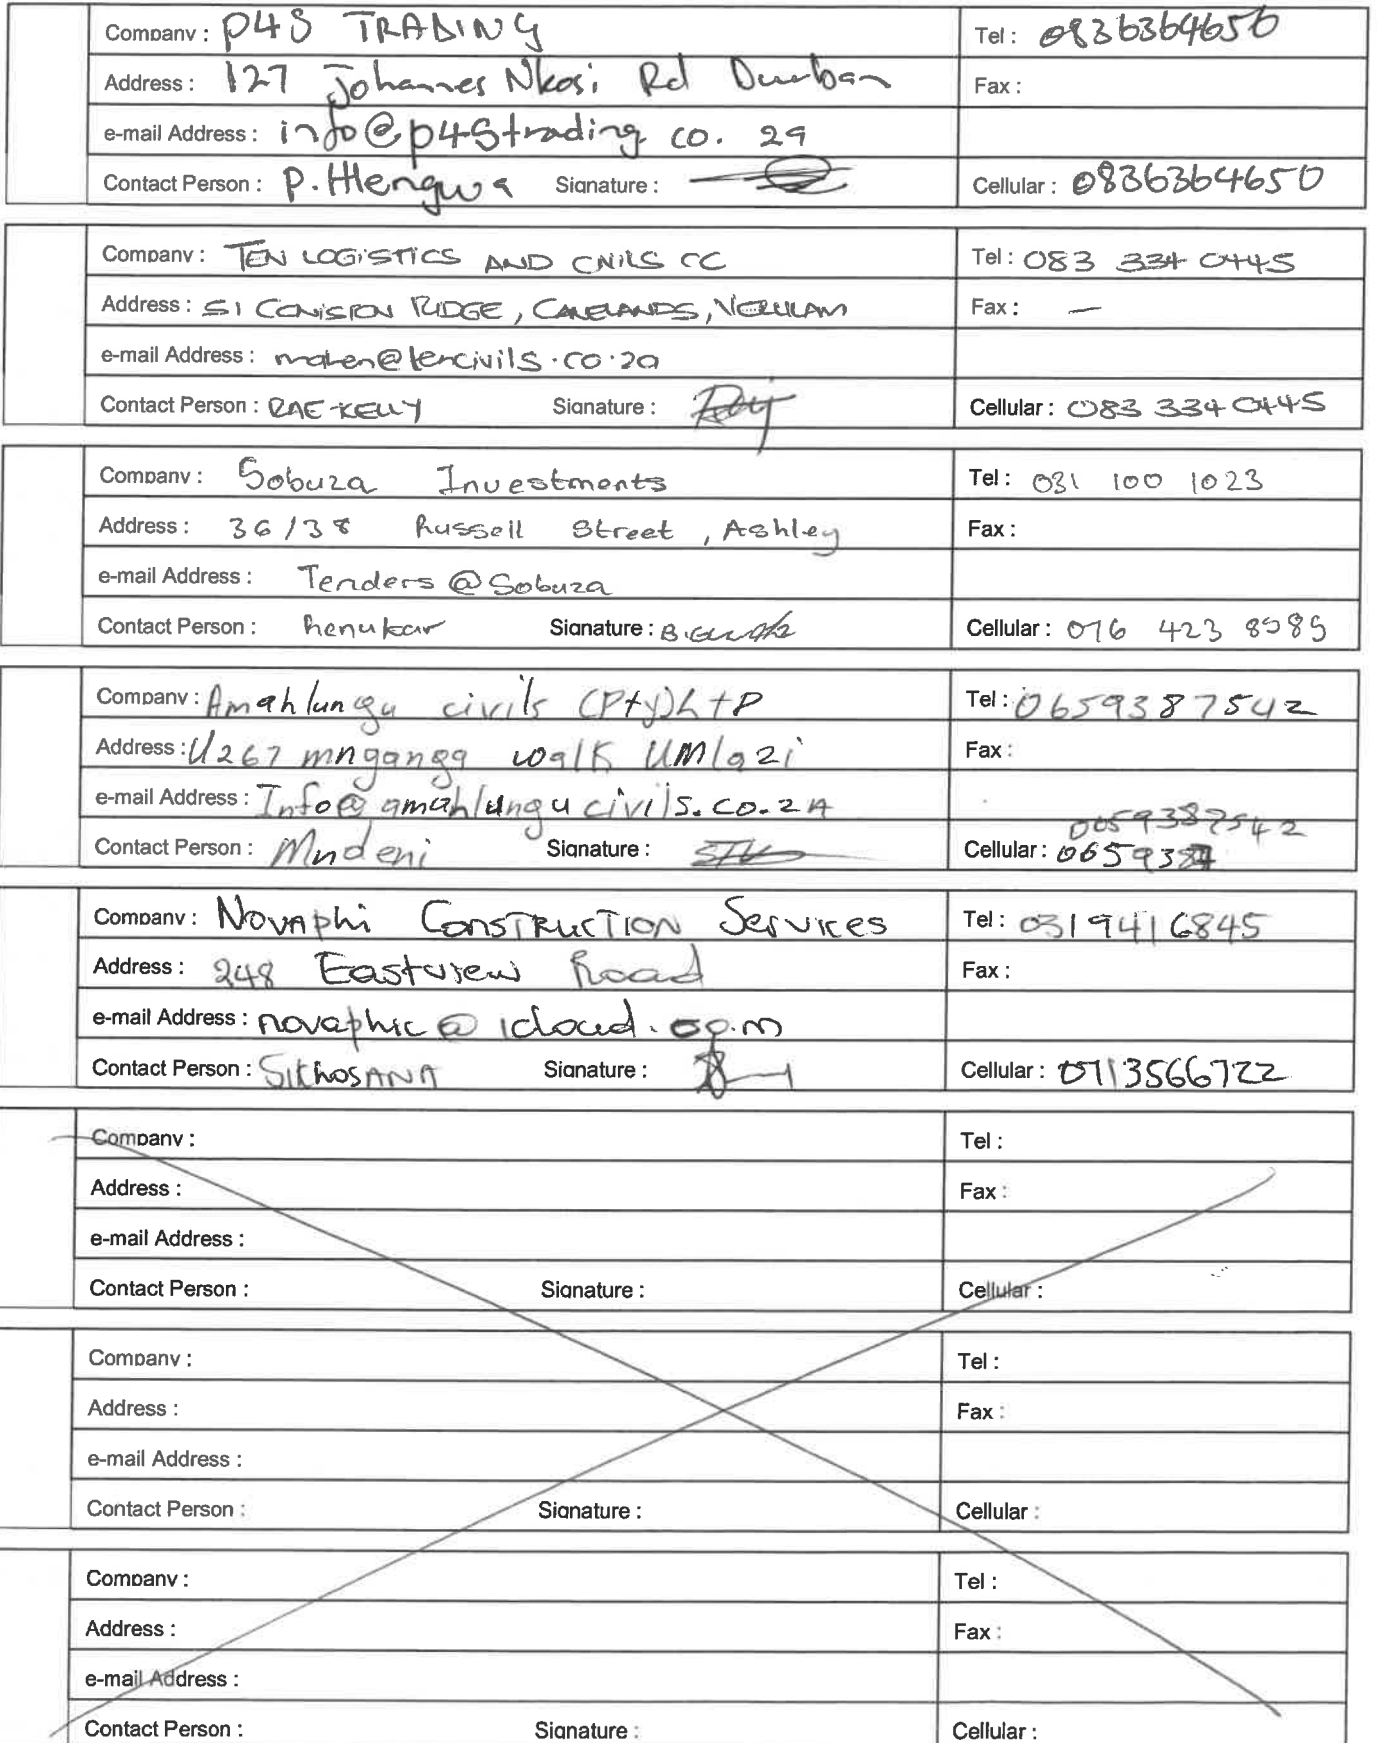 Company : P4S TRADING Tel : 0836364650
Address : 127 Johannes Nkosi Rd Durban Fax :
e-mail Address : info@p4Strading co. za
Contact Person : P. Hlengwa Signature : Cellular : 0836364650
Company : TEN LOGISTICS AND CIVILS CC Tel : 083 334 0445
Address : 51 CONISTON RIDGE, CANELANDS, VERULAM Fax : —
e-mail Address : @tencivils.co.za
Contact Person : RAE-KELLY Signature : Cellular : 083 334 0445
Company : Sobuza Investments Tel : 031 100 1023
Address : 36/38 Russell Street , Ashley Fax :
e-mail Address : Tenders @ Sobuza
Contact Person : Renukar Signature : Cellular : 076 423 8989
Company : Amahlungu civils (Pty)LtD Tel : 0659387542
Address : U267 mnganga walk UMlazi Fax :
e-mail Address : Info@amahlungucivils.co.zA
0659387542
Contact Person : Mndeni Signature : Cellular : 065938
Company : Novaphi CONSTRUCTION Services Tel : 0319416845
Address : 248 Eastview Road Fax :
e-mail Address : novaphic@icloud.
Contact Person : SithosANA Signature : Cellular : 0713566722
Company : Tel :
Address : Fax :
e-mail Address :
Contact Person : Signature : Cellular :
Company : Tel :
Address : Fax :
e-mail Address :
Contact Person : Signature : Cellular :
Company : Tel :
Address : Fax :
e-mail Address :
Contact Person : Signature : Cellular :